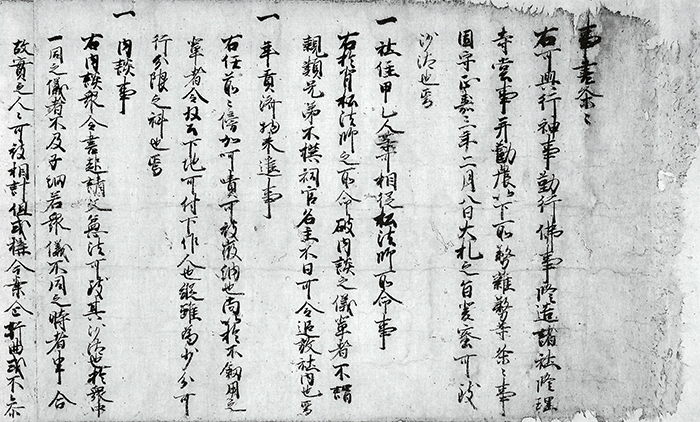 事書条々
右可興行神事勤行佛事修造諸社修理
寺堂事并勸農以下所務雜務等条々事
国守正嘉二年二月八日大札之旨炎蜜可致
沙汰也焉
一社住甲乙人等可相従松法師所命事
右於背松法師之所命破内談之儀輩者不謂
親類兄弟不撰祠官名主不日可令追放社内也焉
一年貢濟物未進事
右任前々傍 可 可被徴納也尚於不叙用之
輩者令収公下地可付下作人也縦雖為少分可
行分限之科也焉
一内談事
右内談衆令書起請文無法可致其沙汰也於衆中
一同之儀者不及子細若衆儀不同之時者
故實之人々可被相計但或構今案企奸曲或不